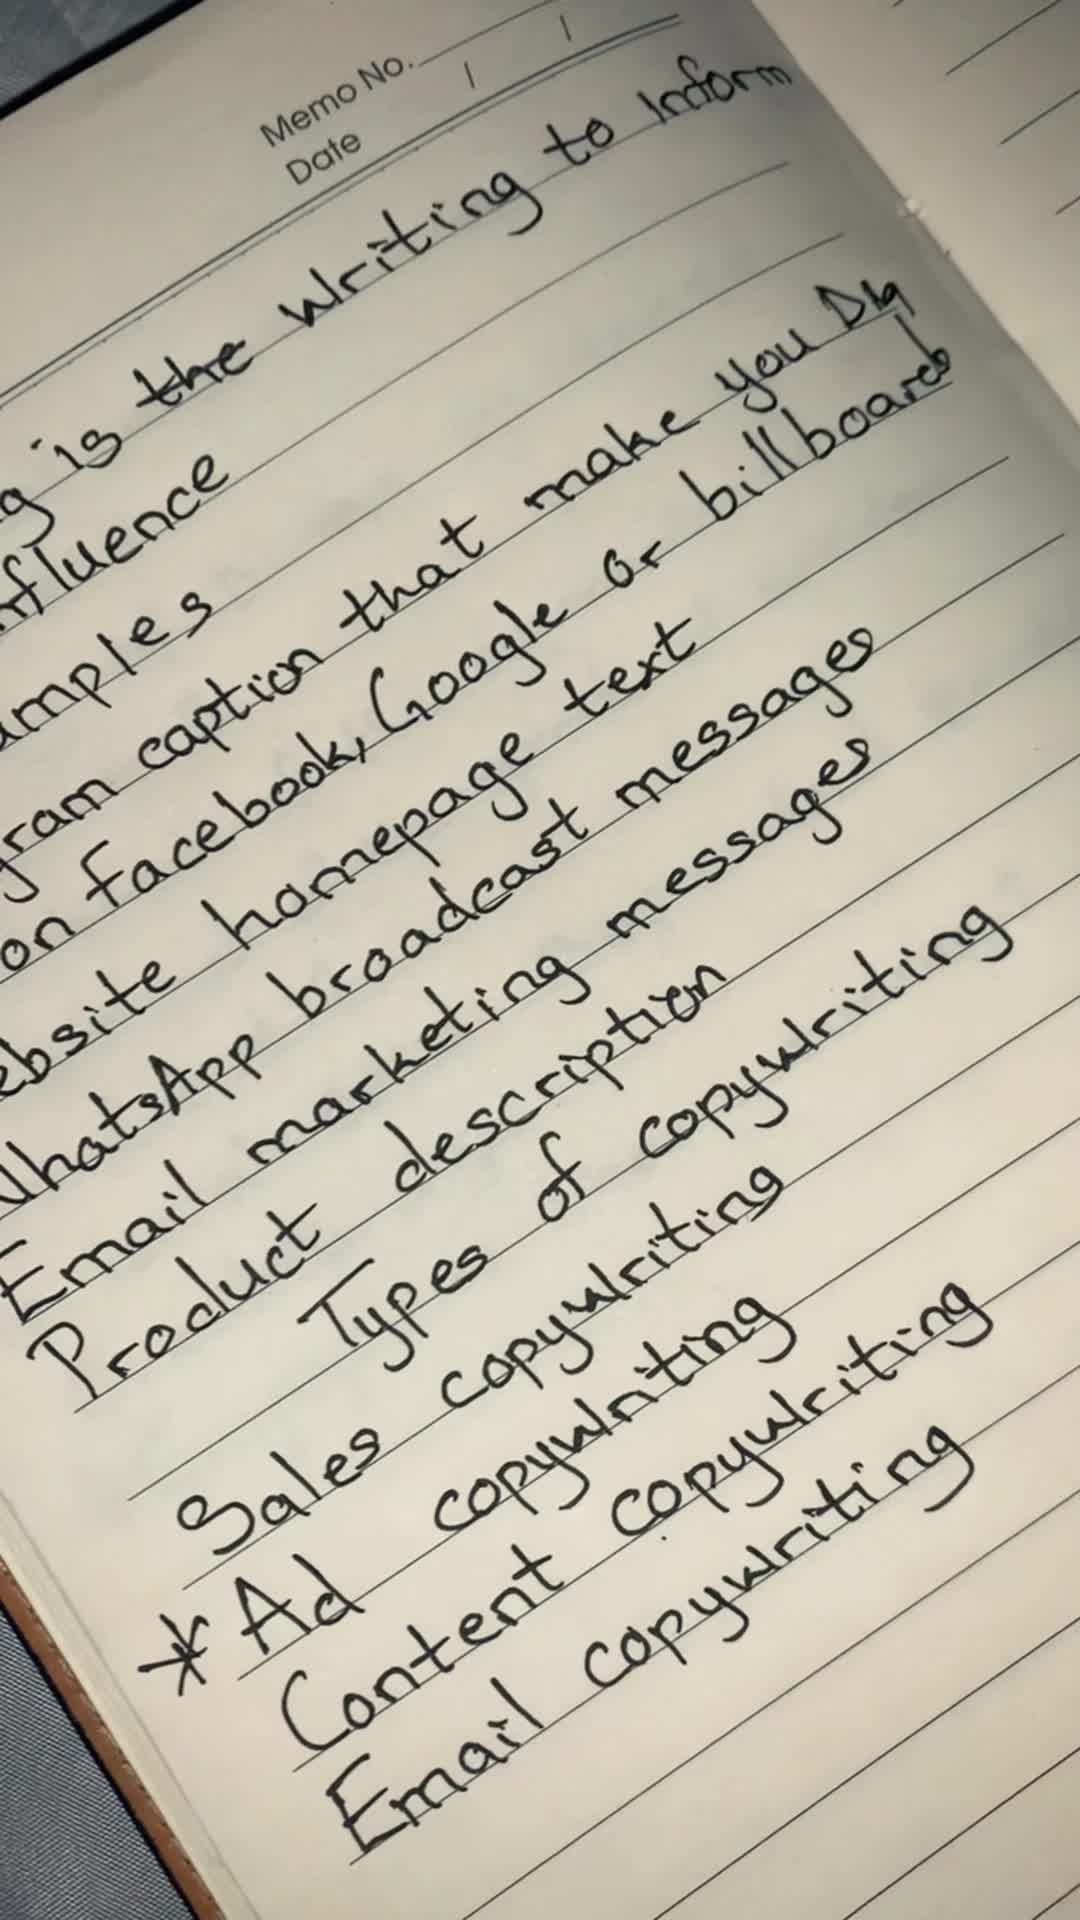 Memo No.
Date / /
g is the writing to Inform
nfluence
amples
gram caption that make you DM
on Facebook, Google or billboards
ebsite homepage text
WhatsApp broadcast messages
Email marketing messages
Product description
Types of copywriting
Sales copywriting
* Ad copywriting
Content copywriting
Email copywriting